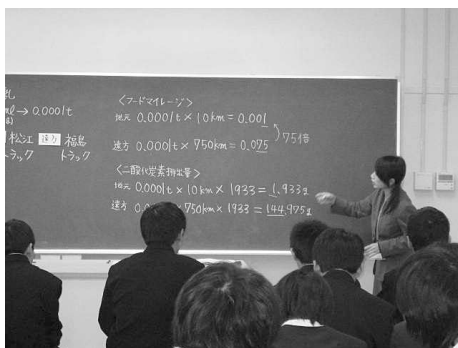 乳
ml → 0.0001t
松江 遠方 福島
トラック トラック
〈フードマイレージ〉
地元 0.0001t × 10km = 0.001
75倍
遠方 0.0001t × 750km = 0.075
〈二酸化炭素排出量〉
地元 0.0001t × 10km × 1933 = 1.933g
遠方 0.0001t × 750km × 1933 = 144.975g